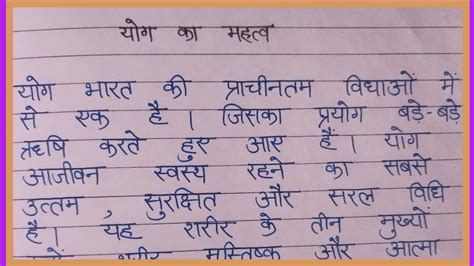 योग का महत्व
योग भारत की प्राचीनतम विधाओं में
से एक है । जिसका प्रयोग बड़े-बड़े
ऋषि करते हुए आए हैं। योग
आजीवन स्वस्थ रहने का सबसे
उत्तम , सुरक्षित और सरल विधि
है। यह शरीर के तीन मुख्यों
शरीर मस्तिष्क और आत्मा